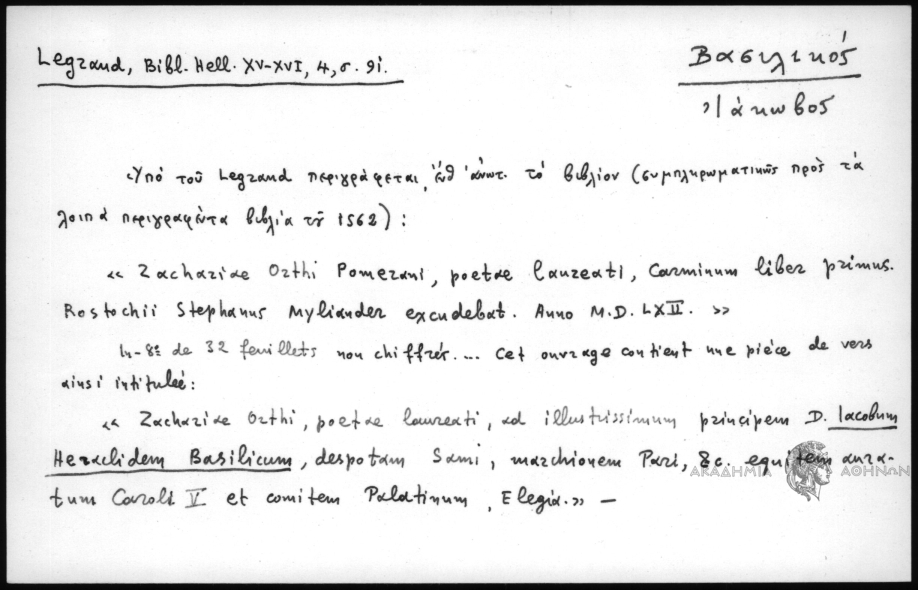 Legrand, Bibl. Hell. XV-XVI, 4, σ. 91.
Βασιλικός
Ἰάκωβος
Ὑπό τοῦ Legrand περιγράφεται, ἐνθ' ἀνωτ. τό βιβλίον (συμπληρωματικῶς πρὸς τά
λοιπά περιγραφέντα βιβλία τοῦ 1562):
« Zachariae Orthi Pomerani, poetae laureati, Carminum liber primus.
Rostochii Stephanus Myliander excudebat. Anno M.D. LXII. »
In-8º de 32 feuillets non chiffrés.... Cet ouvrage contient une pièce de vers
ainsi intitulée:
« Zachariae Orthi, poetae laureati, ad illustrissimum principem D. Iacobum
Heraclidem Basilicum, despotam Sami, marchionem Pari, &c. equitem aura-
tum Caroli V et comitem Palatinum, Elegia.» —
ΑΚΑΔΗΜΙΑ ΑΘΗΝΩΝ